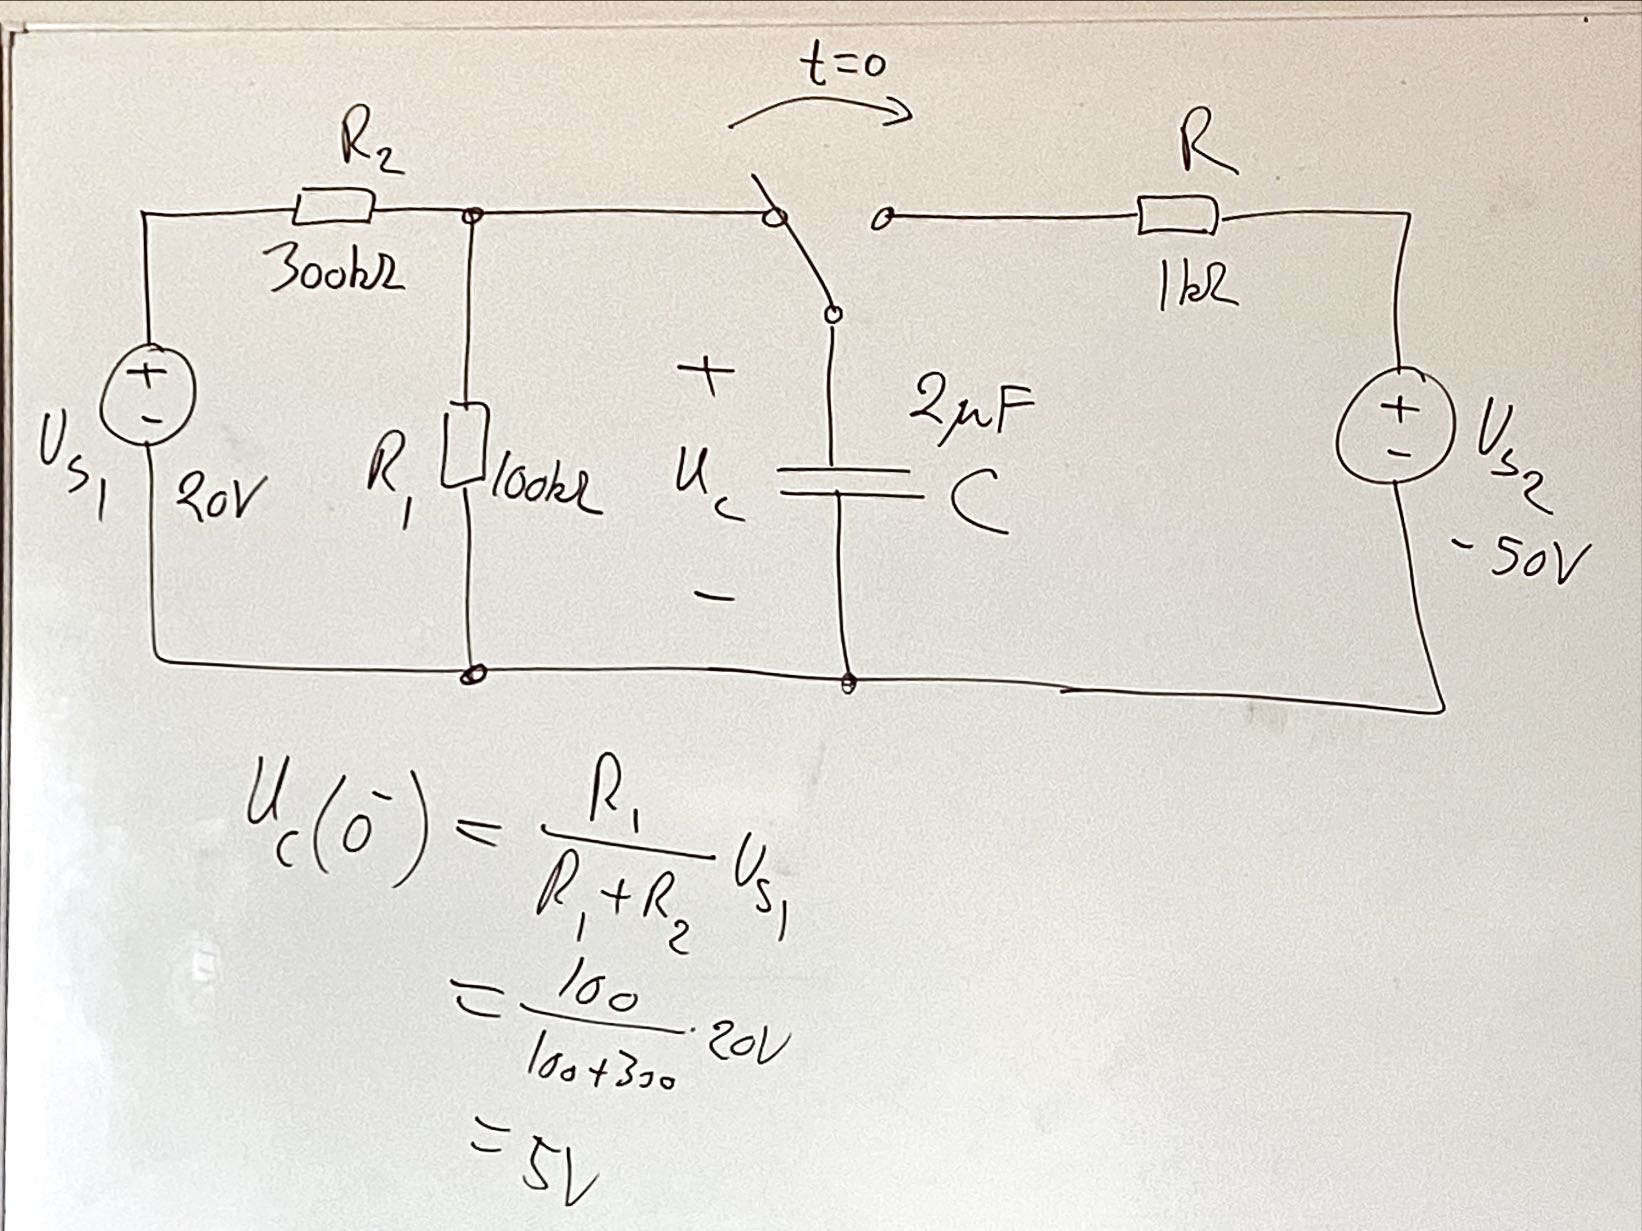 t=0
R₂
R
300kΩ
1kΩ
+
-
U_S₁
20V
R₁
100kΩ
+
u_c
-
2μF
C
+
-
U_S₂
-50V
u_c(0⁻) = R₁ / (R₁+R₂) U_S₁
= 100 / (100+300) · 20V
= 5V